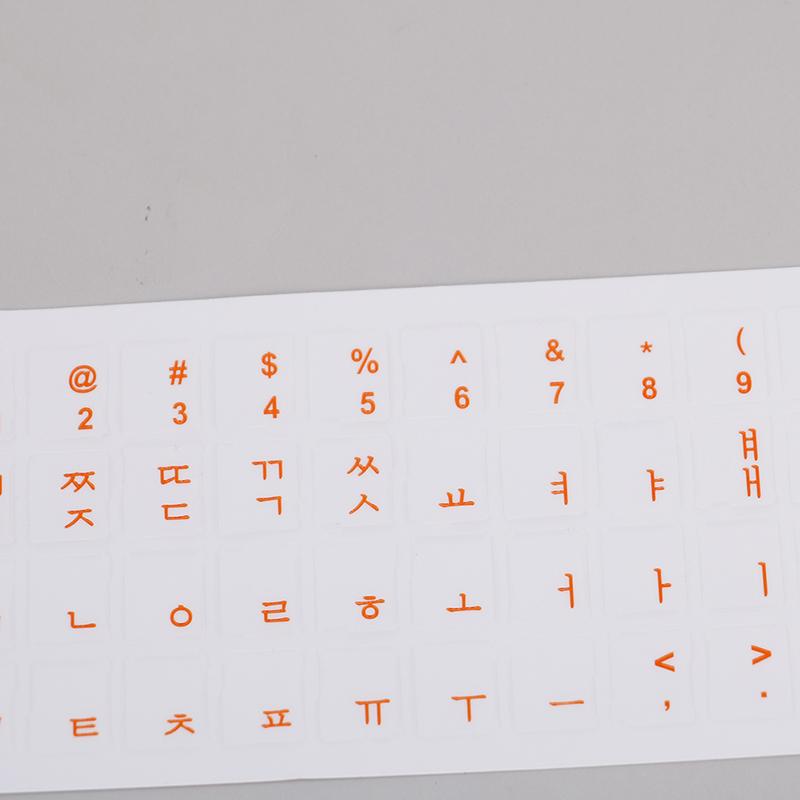 @ # $ % ^ & * (
2 3 4 5 6 7 8 9
ㅉ ㄸ ㄲ ㅆ ㅒ
ㅈ ㄷ ㄱ ㅅ ㅛ ㅕ ㅑ ㅐ
ㄴ ㅇ ㄹ ㅎ ㅗ ㅓ ㅏ ㅣ
< >
ㅌ ㅊ ㅍ ㅠ ㅜ ㅡ , .